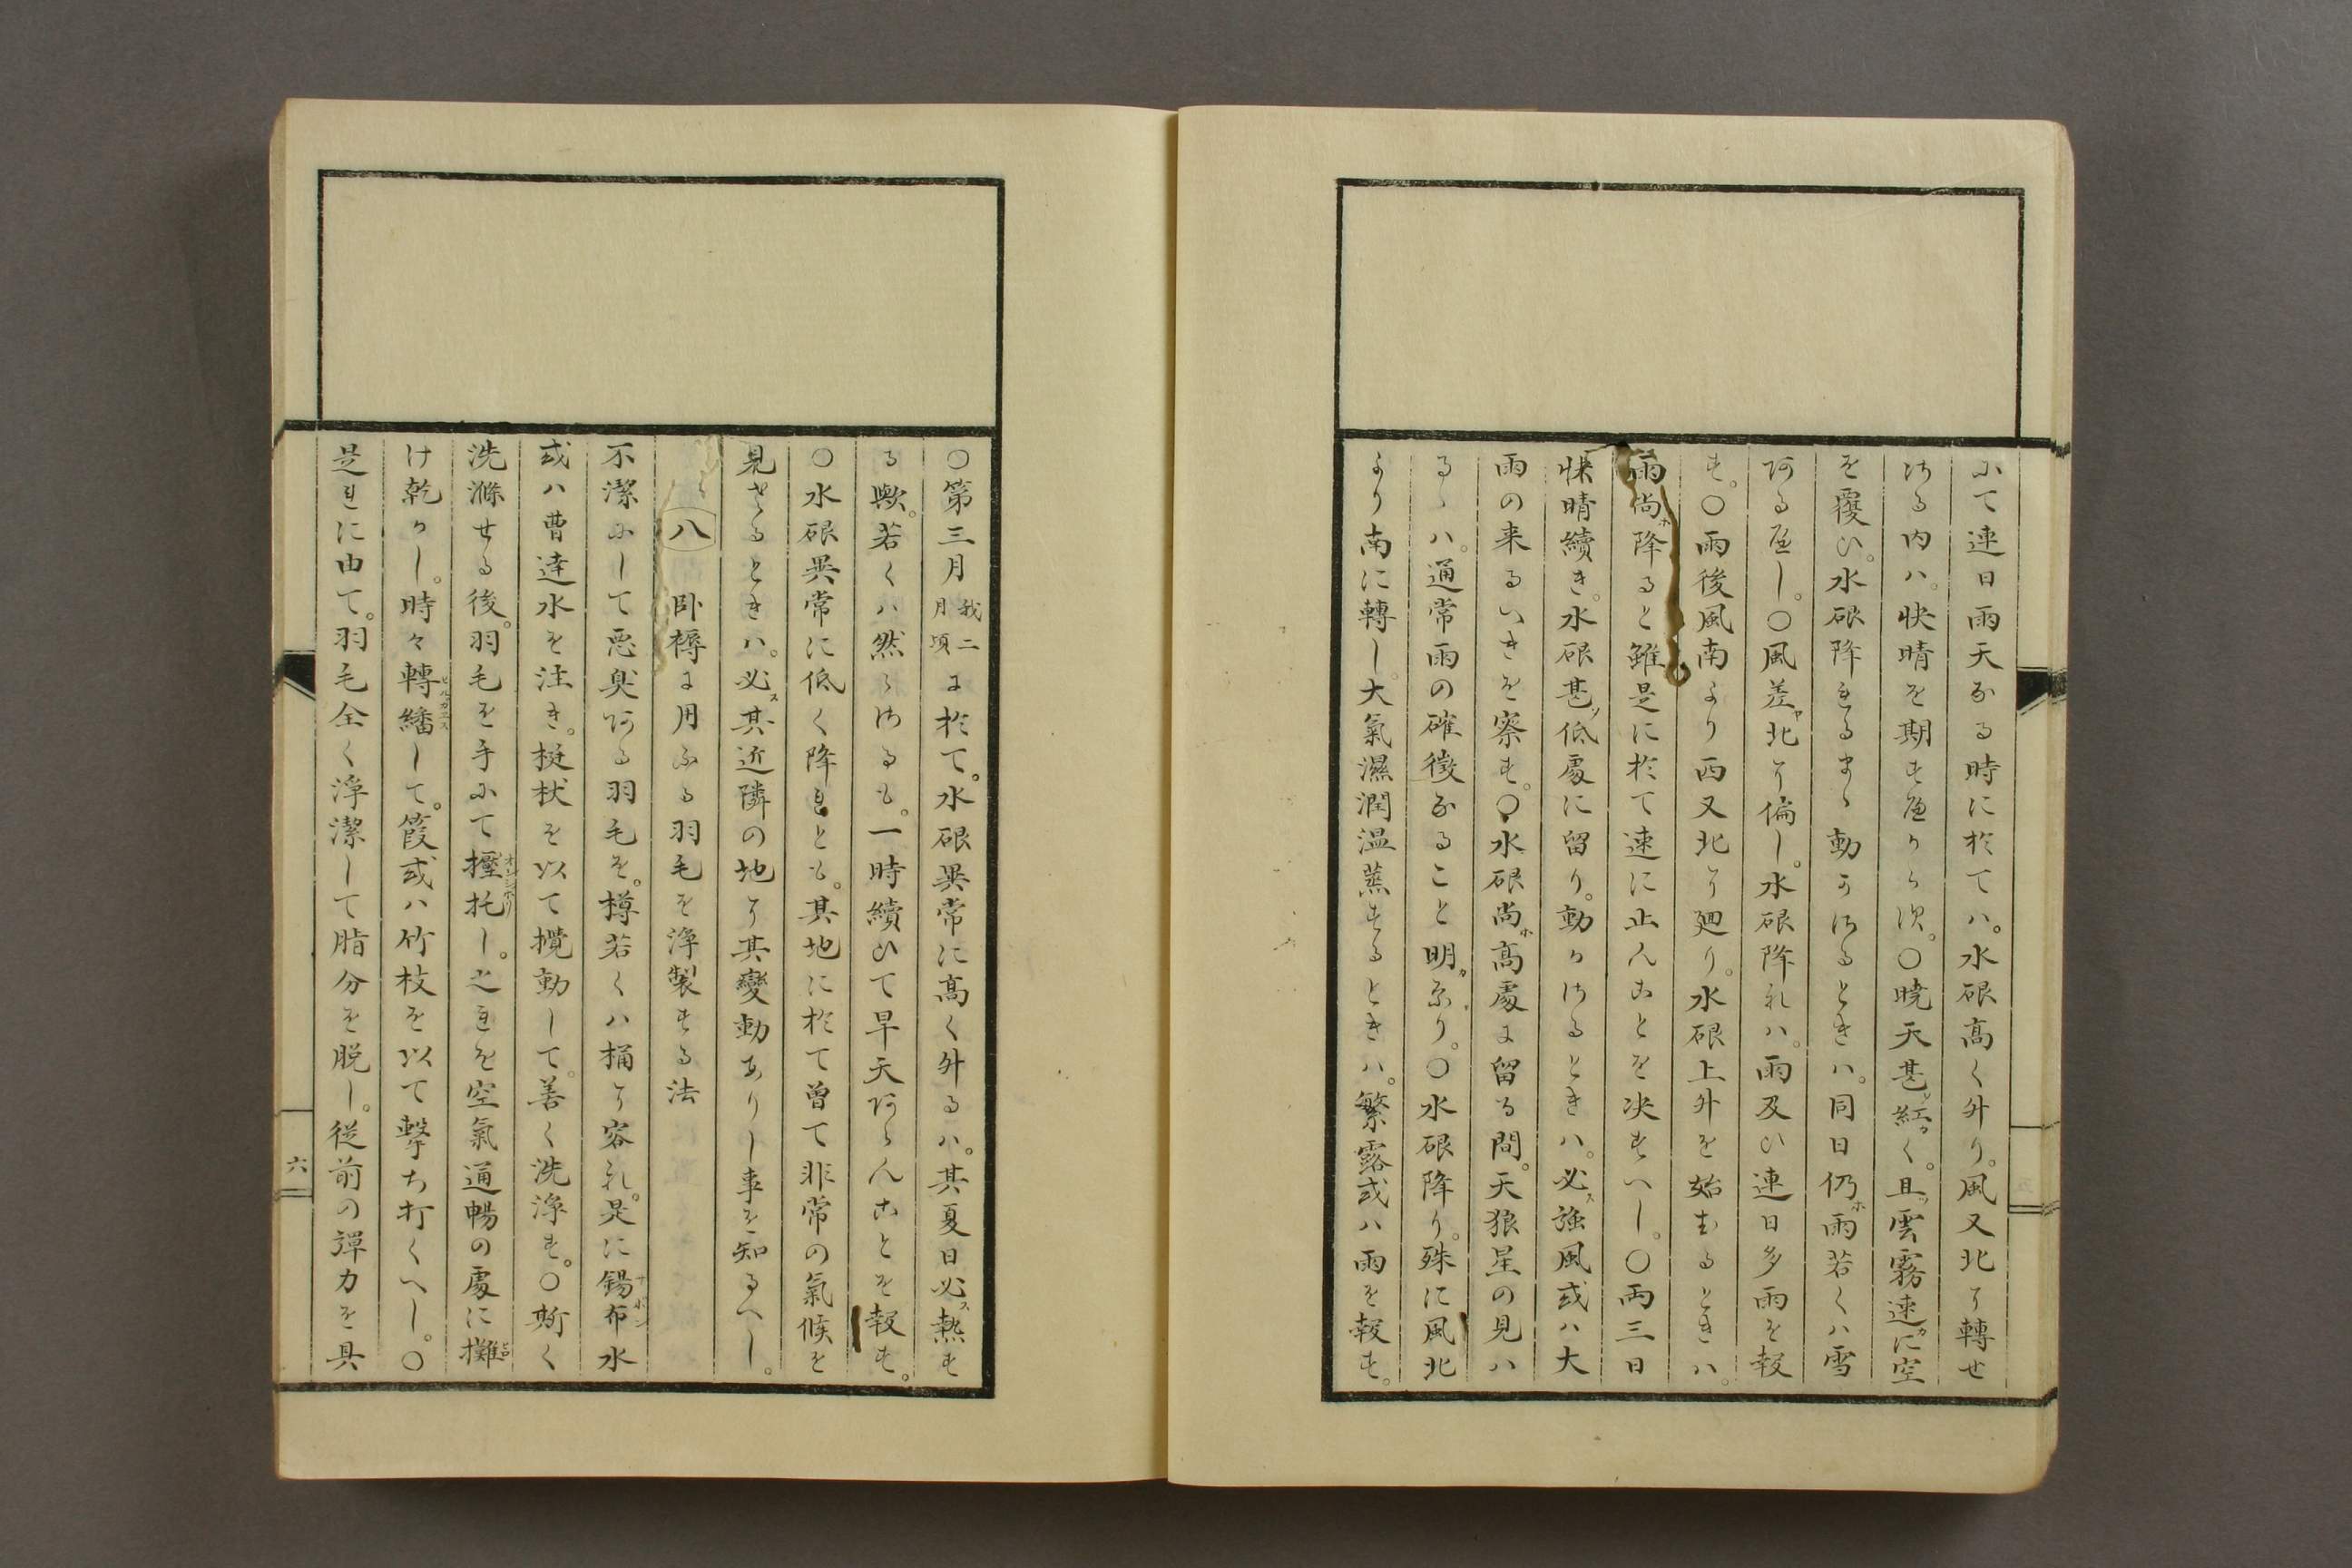 にて連日雨天なる時に於てハ。水銀高く升り。風又北に轉せ
さる内ハ。快晴を期すへからす。〇暁天甚ソ紅カく。且ツ雲霧速カに空
を覆ひ。水銀降れるまゝ動かさるときハ。同日仍ホ雨若くハ雪
ある へし。〇風差ヤ北に偏し。水銀降れハ。雨及ひ連日多雨を報
す。〇雨後風南より西又北に廻り。水銀上升を始むるときハ。
雨尚ホ降ると雖是に於て速に止んことを决すへし。〇両三日
快晴續き。水銀甚ソ低處に留り。動かさるときハ。必ス強風或ハ大
雨の来るへきを察す。〇水銀尚ホ高處に留る間。天狼星の見ハ
るゝハ。通常雨の確徴なること明カなり。〇水銀降り。殊に風北
より南に轉し。大氣濕潤温蒸するときハ。繁露或ハ雨を報す。
〇第三月我二月頃に於て。水銀異常に高く升るハ。其夏日必ス熱す
る歟。若くハ然らさるも。一時續ひて旱天あらんことを報す。
〇水銀異常に低く降れとも。其地に於て曽て非常の氣候を
見さるときハ。必ス其近隣の地に其變動ありし事を知るへし。
八　卧褥に用ふる羽毛を淨製する法
不潔にして悪臭ある羽毛を。樽若くハ桶に容れ。是に錫布サボン水
或ハ曹達水を注き。梃杖を以て攪動して。善く洗淨す。〇斯く
洗滌せる後。羽毛を手にて握托オシシホリし。之れを空氣通暢の處に攤ヒロ
け乾かし。時々轉繙ヒルガエスして。葭或ハ竹枝を以て擊ち打くへし。〇
是れに由て。羽毛全く淨潔して脂分を脱し。従前の弾力を具
六